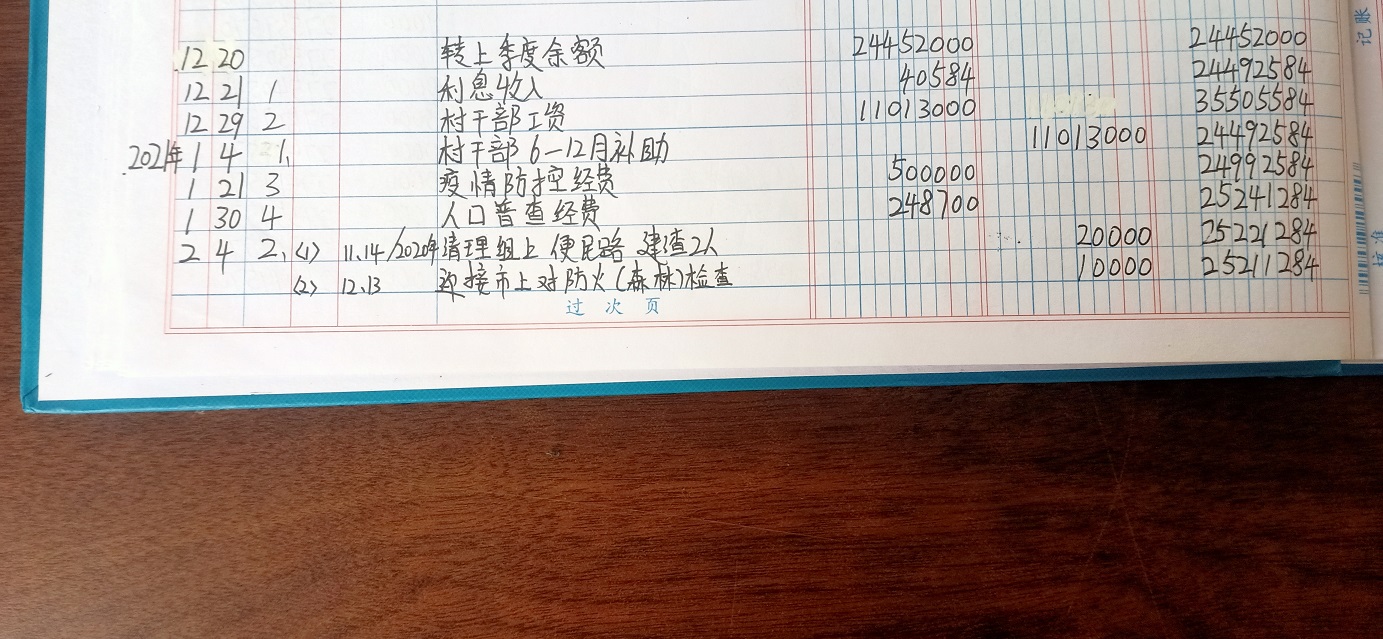 12 20 转上季度余额 24452000 24452000
12 21 1 利息收入 40584 24492584
12 29 2 村干部工资 11013000 35505584
2021年 1 4 1. 村干部6-12月补助 11013000 24492584
1 21 3 疫情防控经费 500000 24992584
1 30 4 人口普查经费 248700 25241284
2 4 2. (1) 11.14/2020年 清理组上便民路 建渣2人 20000 25221284
(2) 12.13 迎接市上对防火(森林)检查 10000 25211284
过次页
记账